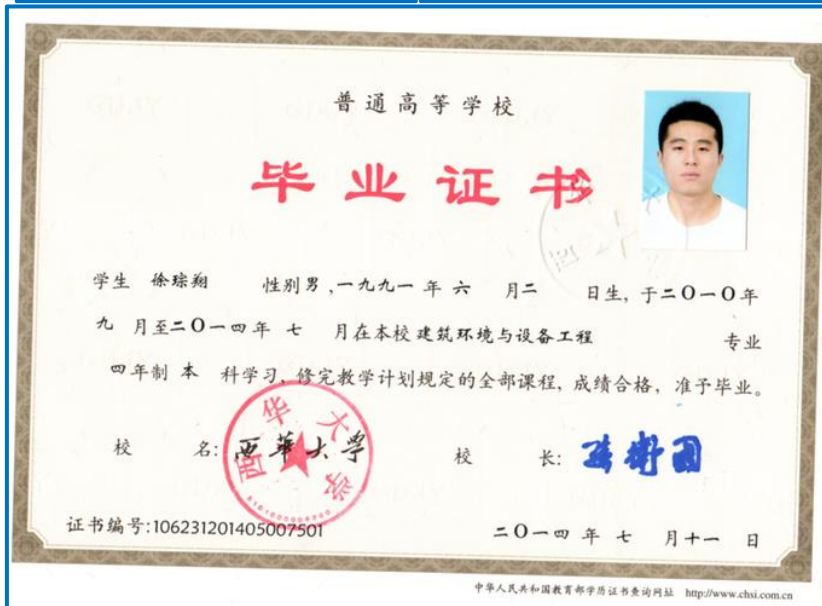 普通高等学校
毕业证书
学生 徐琮翔 性别男,一九九一年 六 月二 日生,于二〇一〇年
九 月至二〇一四年 七 月在本校 建筑环境与设备工程 专业
四年制 本 科学习,修完教学计划规定的全部课程,成绩合格,准予毕业。
校 名: 西华大学 校 长:
西华大学
证书编号:106231201405007501 二〇一四 年 七 月十一 日
中华人民共和国教育部学历证书查询网址 http://www.chsi.com.cn